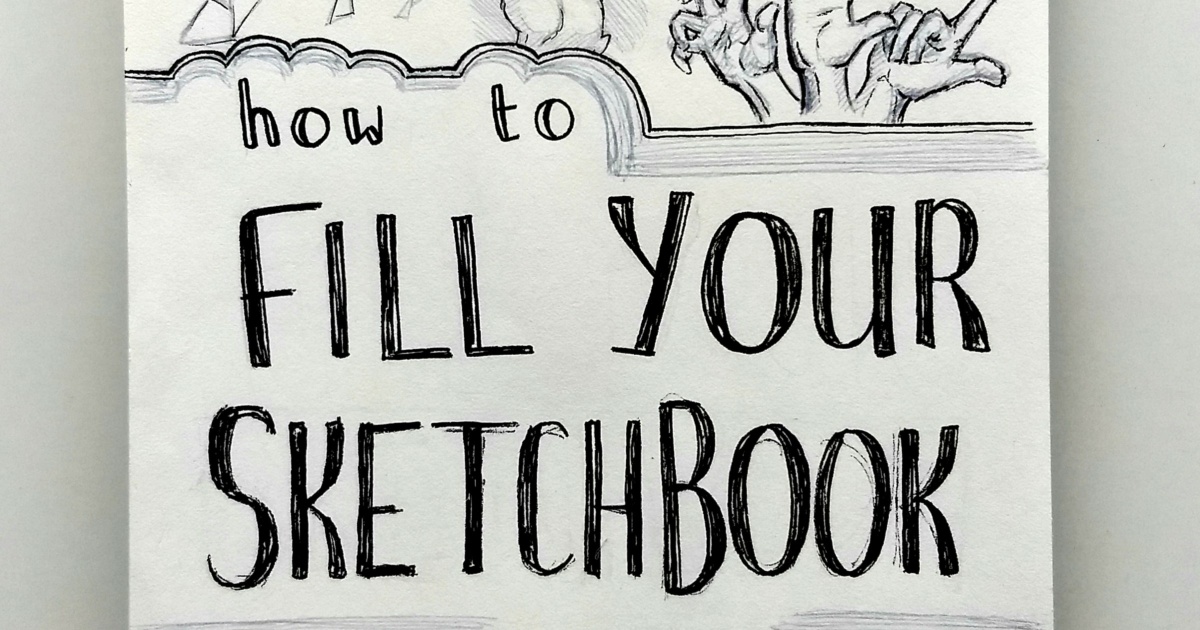 how to
FILL YOUR
SKETCHBOOK